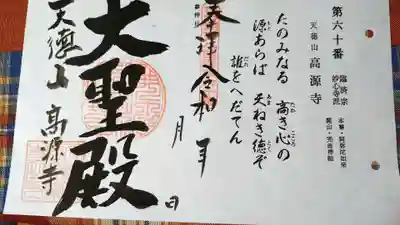 第六十番
臨済宗
妙心寺派
天徳山 高源寺
本尊・阿弥陀如来
たのみなる 高き心の
たか こころ
源あらば 天ねき徳ぞ
あま とく
誰をへだてん
奉拝 令和 年
月
日
大聖殿
天徳山 高源寺